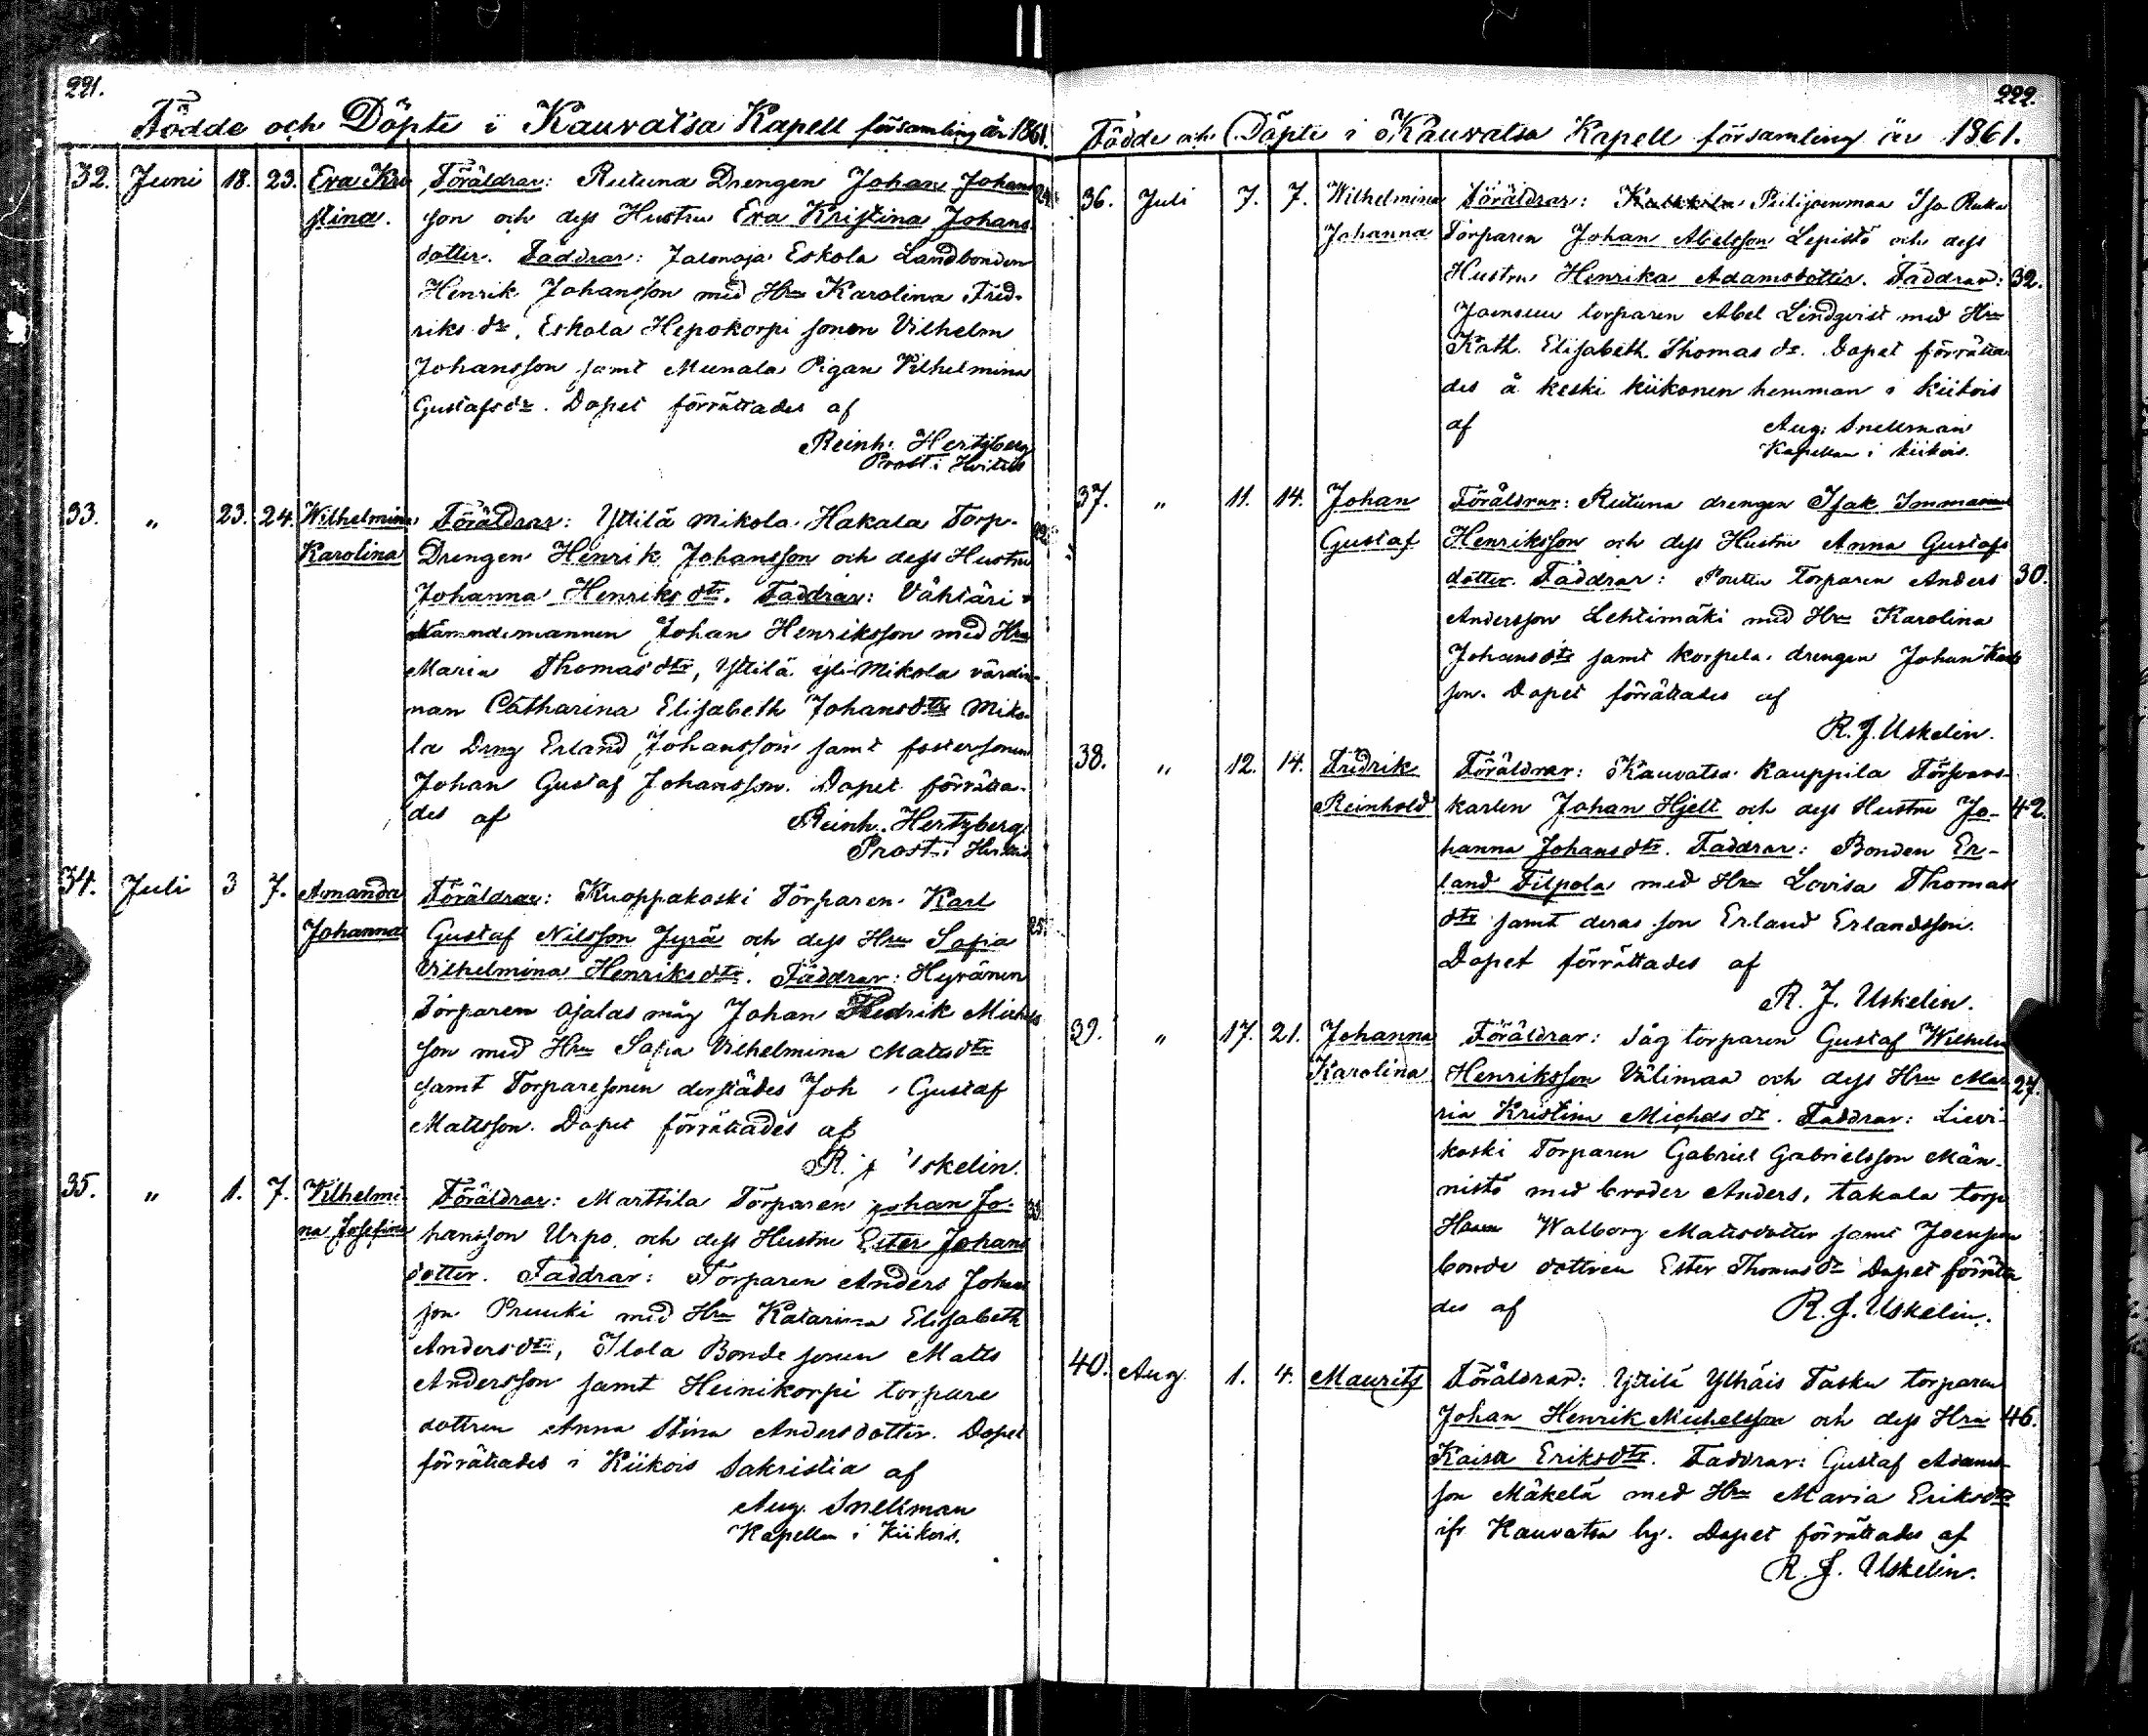 221.
Födde och Döpte i Kauvatsa Kapell församling år 1861.
32. Juni 18. 23. Eva Kri Föräldrar: Rutuna Drengen Johan Johans
stina. son och dess Hustru Eva Kristina Johans
dotter. Faddrar: Jalonoja Eskola Landbonden
Henrik Johansson med Hru Karolina Fred-
riks dr, Eskola Hepokorpi sonen Vilhelm
Johansson samt Munala Pigan Vilhelmina
Gustafsdr. Dopet förrättades af
Reinh. Hertzberg
Prost i Hvittis
33. " 23. 24. Wilhelmina Föräldrar: Yttilä Mikola Hakala Torp-
Karolina Drengen Henrik Johansson och dess Hustru
Johanna Henriks dtr. Faddrar: Vähtäri
Nämndemannen Johan Henriksson med Hru
Maria Thomas dtr, Yttilä yli-Mikola värdin-
nan Catharina Elisabeth Johans dtr Miko-
la Dreng Erland Johansson samt fostersonen
Johan Gustaf Johansson. Dopet förrätta-
des af Reinh. Hertzberg
Prost i Hvittis
34. Juli 3 7. Amanda Föräldrar: Kuoppakoski Torparen Karl 25.
Johanna Gustaf Nilsson Jyrä och dess Hru Sofia
Vilhelmina Henriks dtr. Faddrar: Hyvänen
Torparen Ojalas måg Johan Fredrik Michels
son med Hru Sofia Vilhelmina Matts dtr
samt Torparesonen derstädes Joh Gustaf
Mattsson. Dopet förrättades af
R. J Uskelin.
35. " 1. 7. Vilhelmi- Föräldrar: Marttila Torparen Johan Jo-
na Josefina hansson Urpo och dess Hustru Ester Johans
dotter. Faddrar: Torparen Anders Johans
son Pruuki med Hru Katarina Elisabeth
Anders dtr, Ilola Bonde sonen Matts
Andersson samt Heinikorpi torpare
dottren Anna Stina Andersdotter. Dopet
förrättades i Kiikois Sakristia af
Aug. Snellman
Kapellan i Kiikois.
222.
Födde och Döpte i Kauvatsa Kapell församling år 1861.
36. Juli 7. 7. Wilhelmina Föräldrar: Piilijoenmaa Iso Ruka
Johanna Torparen Johan Abelsson Lepistö och dess
Hustru Henrika Adamsdotter. Faddrar: 32.
Joensuu torparen Abel Lindqvist med Hru
Kath. Elisabeth Thomas dr. Dopet förrätta-
des å Keski Kiikonen hemman i Kiikois
af Aug. Snellman
Kapellan i Kiikois.
37. " 11. 14. Johan Föräldrar: Rutuna drengen Isak Immanuel
Gustaf Henriksson och dess Hustru Anna Gustafs
dotter. Faddrar: Torparen Anders 30.
Andersson Lehtimäki med Hru Karolina
Johans dtr samt Korpela drengen Johan Karls
son. Dopet förrättades af
R. J. Uskelin.
38. " 12. 14. Fredrik Föräldrar: Kauvatsa Kauppila Försvars-
Reinhold karlen Johan Hjelt och dess Hustru Jo- 42.
hanna Johans dtr. Faddrar: Bonden Er-
land Filpola med Hru Lovisa Thomas
dtr samt deras son Erland Erlandsson.
Dopet förrättades af
R. J. Uskelin.
39. " 17. 21. Johanna Föräldrar: Såg torparen Gustaf Wilhelm
Karolina Henriksson Välimaa och dess Hru Ma- 27.
ria Kristina Michels dr. Faddrar: Lievi-
koski Torparen Gabriel Gabrielsson Män-
nistö med broder Anders, Takala torp
Hustru Walborg Mattsdotter samt Joensuu
bonde dottren Ester Thomas dr Dopet förrätta
des af R. J. Uskelin.
40. Aug. 1. 4. Maurits Föräldrar: Yttilä Ylhäis Tasku torparen
Johan Henrik Michelsson och dess Hru 46.
Kaisa Eriks dtr. Faddrar: Gustaf Adams-
son Mäkelä med Hru Maria Eriksdtr
ifr Kauvatsa by. Dopet förrättades af
R. J. Uskelin.